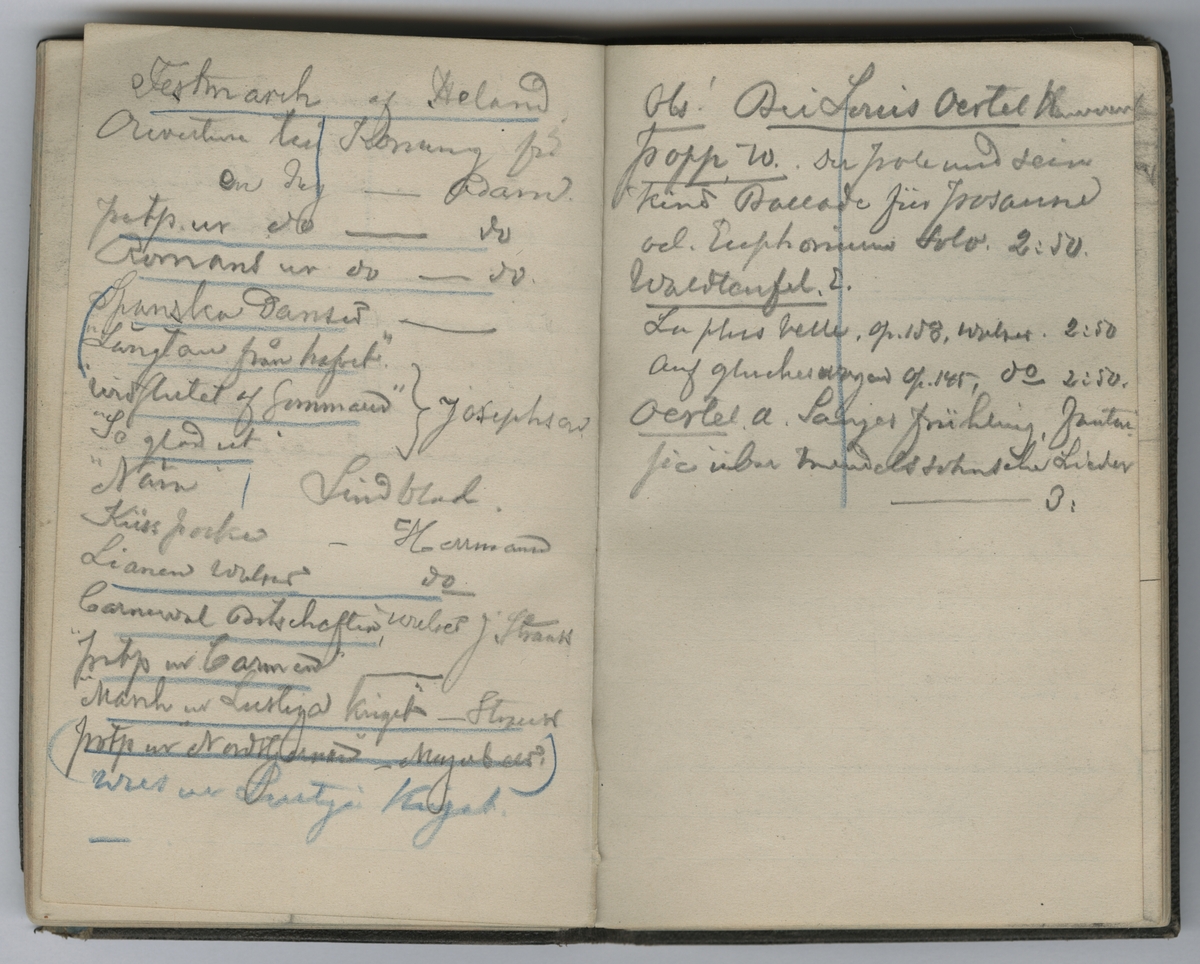 Festmarch af Heland
Ouverture till Konung för
en dag — Adam.
potp. ur do — do
Romans ur do — do.
Spanska Danser —
"Längtan från hafvet".
"Vid slutet af Sommaren" } Josephson
"So glad ut"
"Nära" Lindblad.
Küss polka - Herrmann
Lianen Walser do
Carneval Botschafter, walser J Strauss
"potp ur Carmen" —
"March ur Lustiga kriget" — Strauss
(potp ur "Nordstjernan" - Mejerbeer)
Vals ur Lustiga Kriget.
Obs! Bei Louis Oertel Hannover
Popp, W. Der Pole und sein
Kind Ballade für Posaune
od. Euphonium Solo. 2:50.
Waldteufel. E.
La plus belle, op. 158, walser. 2:50
Auf glücheswogen op. 145, do 2:50.
Oertel. A. Sänjes frühling, Fanta
sie über Mendelssohnsche Lieder
— 3: